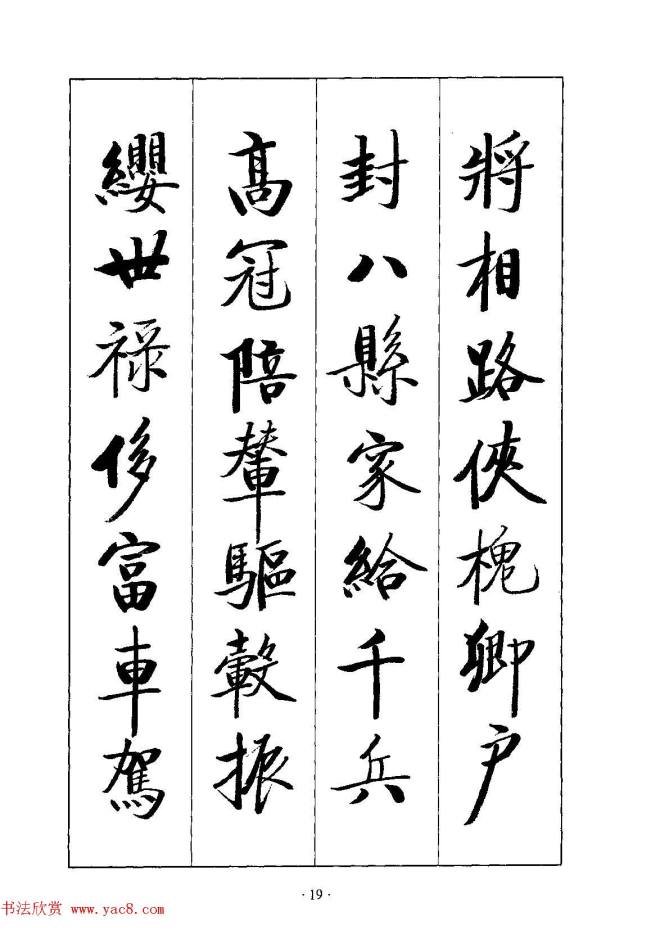 將相路俠槐卿户
封八縣家給千兵
高冠陪輦驅轂振
纓世祿侈富車駕
·19·
书法欣赏 www.yac8.com